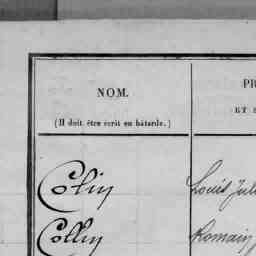 NOM.
(Il doit être écrit en bâtarde.)
PR
ET
Colin
Louis Jul
Collin
Romain